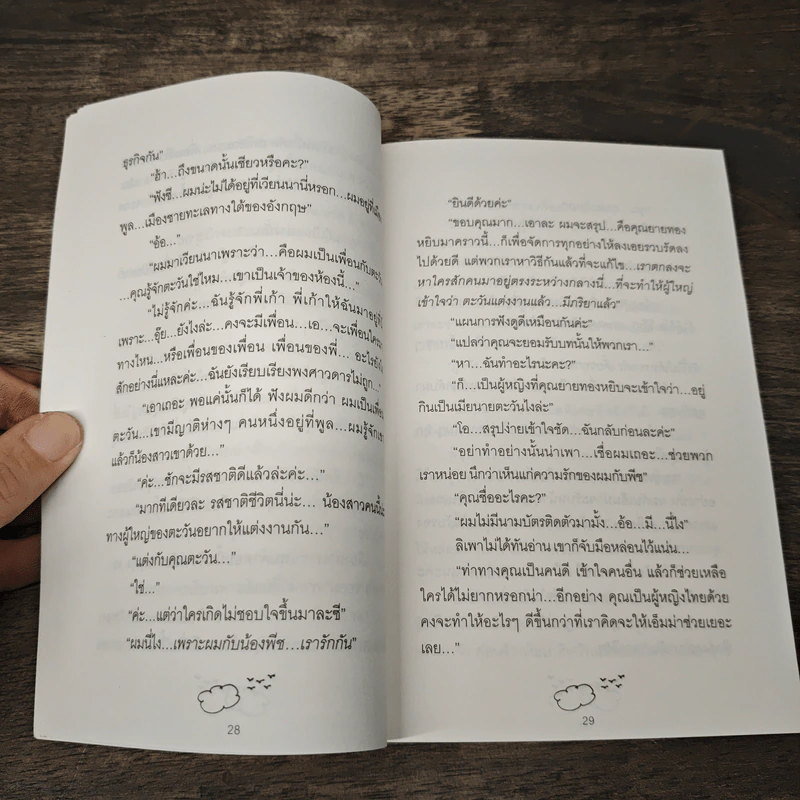 ธุรกิจกัน”
“ฮ้า...ถึงขนาดนั้นเชียวหรือคะ?”
“ฟังซี...ผมน่ะไม่ได้อยู่ที่เวียนนานี่หรอก...ผมอยู่ที่
พูล...เมืองชายทะเลทางใต้ของอังกฤษ”
“อ้อ...”
“ผมมาเวียนนาเพราะว่า...คือผมเป็นเพื่อนกับตะวัน
...คุณรู้จักตะวันใช่ไหม...เขาเป็นเจ้าของห้องนี้...”
“ไม่รู้จักค่ะ...ฉันรู้จักพี่เก้า พี่เก้าให้ฉันมาอยู่ที่
เพราะ...อุ๊ย...ยังไงล่ะ...คงจะมีเพื่อน...เอ...จะเพื่อน
ทางไหน...หรือเพื่อนของเพื่อน เพื่อนของพี่... อะไร
สักอย่างนี่แหละค่ะ...ฉันยังเรียบเรียงพงศาวดารไม่ถูก...”
“เอาเถอะ พอแค่นั้นก็ได้ ฟังผมดีกว่า ผมเป็นเพื่อน
ตะวัน...เขามีญาติห่างๆ คนหนึ่งอยู่ที่พูล...ผมรู้จักเขา
แล้วก็น้องสาวเขาด้วย...”
“ค่ะ...ชักจะมีรสชาติดีแล้วล่ะค่ะ...”
“มากทีเดียวละ รสชาติชีวิตนี่น่ะ... น้องสาวคนนี้น่ะ
ทางผู้ใหญ่ของตะวันอยากให้แต่งงานกัน...”
“แต่งกับคุณตะวัน...”
“ใช่...”
“ค่ะ...แต่ว่าใครเกิดไม่ชอบใจขึ้นมาละซี”
“ผมนี่ไง...เพราะผมกับน้องพีช...เรารักกัน”
28
“ยินดีด้วยค่ะ”
“ขอบคุณมาก...เอาละ ผมจะสรุป...คือคุณยายทอง
หยิบมาคราวนี้...ก็เพื่อจัดการทุกอย่างให้ลงเอยรวบรัดลง
ไปด้วยดี แต่พวกเราหาวิธีกันแล้วที่จะแก้ไข...เราตกลงจะ
หาใครสักคนมาอยู่ตรงระหว่างกลางนี้...ที่จะทำให้ผู้ใหญ่
เข้าใจว่า ตะวันแต่งงานแล้ว...มีภริยาแล้ว”
“แผนการฟังดูดีเหมือนกันค่ะ”
“แปลว่าคุณจะยอมรับบทนั้นให้พวกเรา...”
“หา...ฉันทำอะไรนะคะ?”
“ก็...เป็นผู้หญิงที่คุณยายทองหยิบจะเข้าใจว่า...อยู่
กินเป็นเมียนายตะวันไงล่ะ”
“โอ...สรุปง่ายเข้าใจชัด...ฉันกลับก่อนละค่ะ”
“อย่าทำอย่างนั้นน่าเพา...เชื่อผมเถอะ...ช่วยพวก
เราหน่อย นึกว่าเห็นแก่ความรักของผมกับพีช”
“คุณชื่ออะไรคะ?”
“ผมไม่มีนามบัตรติดตัวมามั้ง...อ้อ...มี...นี่ไง”
ลิเพาไม่ได้ทันอ่าน เขาก็จับมือหล่อนไว้แน่น...
“ท่าทางคุณเป็นคนดี เข้าใจคนอื่น แล้วก็ช่วยเหลือ
ใครได้ไม่ยากหรอกน่า...อีกอย่าง คุณเป็นผู้หญิงไทยด้วย
คงจะทำให้อะไรๆ ดีขึ้นกว่าที่เราคิดจะให้เอ็มม่าช่วยเยอะ
เลย...”
29